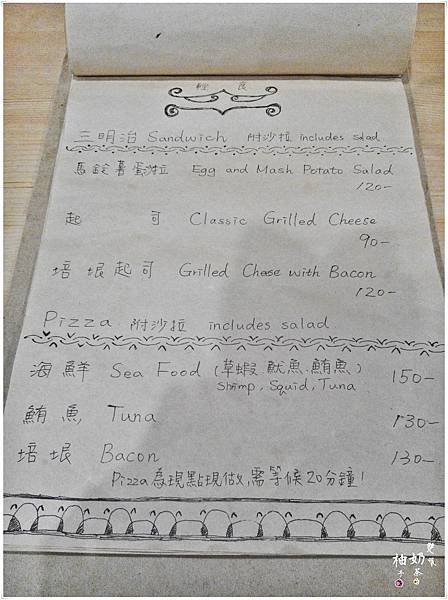 輕食
三明治 Sandwich 附沙拉 includes salad
馬鈴薯蛋沙拉 Egg and Mash Potato Salad
120-
起司 Classic Grilled Cheese
90-
培根起司 Grilled Cheese with Bacon
120-
Pizza 附沙拉 includes salad
海鮮 Sea Food (草蝦.魷魚.鮪魚) 150-
Shrimp, Squid, Tuna
鮪魚 Tuna 130-
培根 Bacon 130-
Pizza為現點現做,需等候20分鐘!